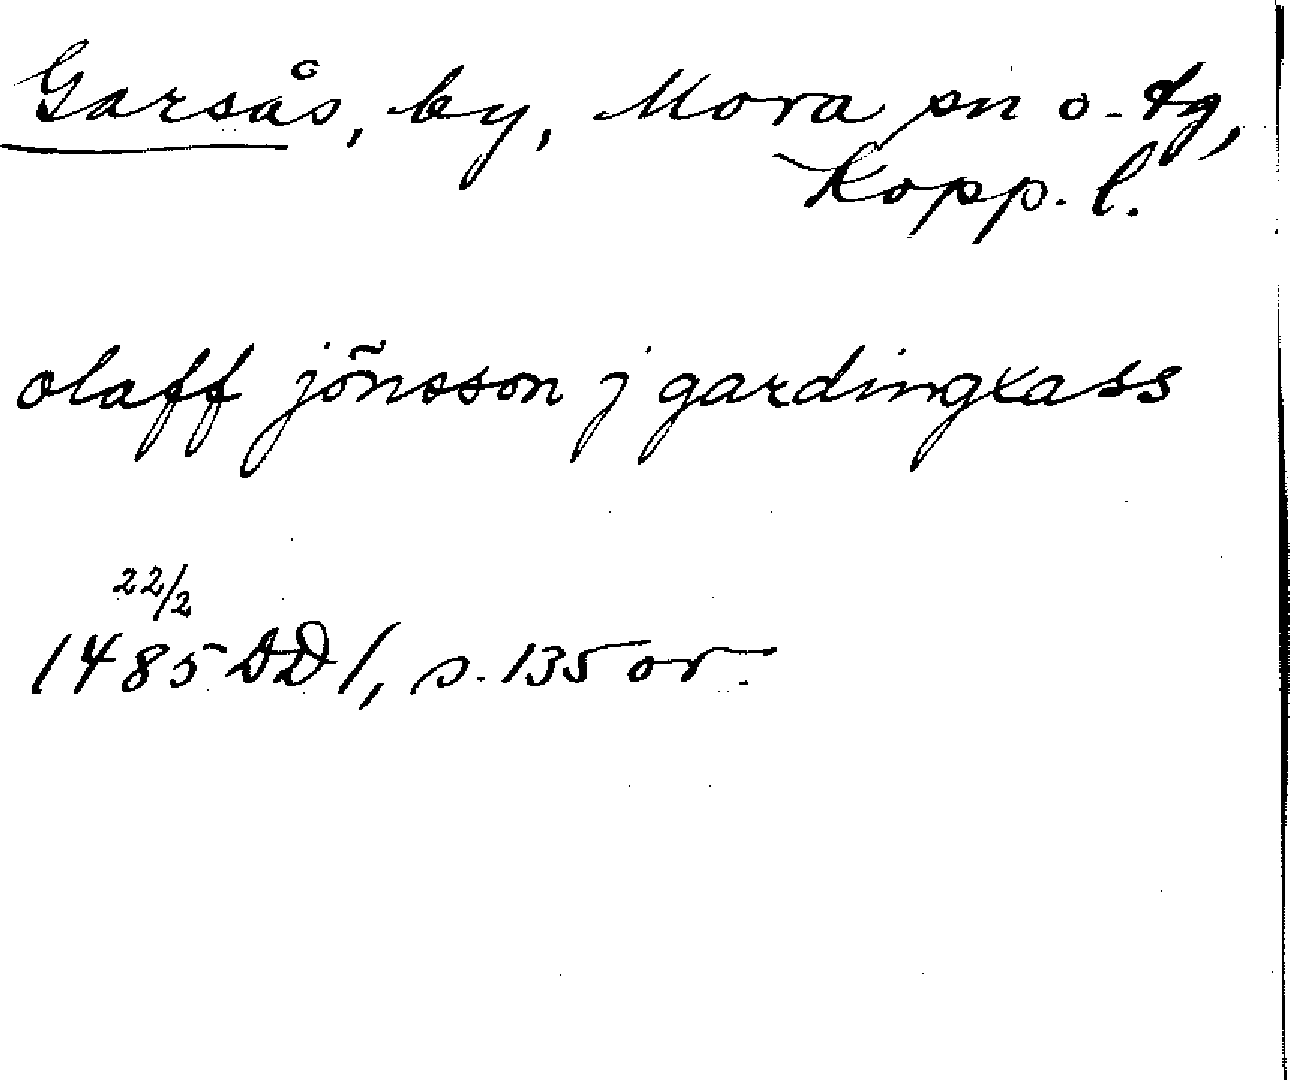 Garsås, by, Mora sn o. tg,
Kopp. l.
olaff jönsson j gardingxass
22/2
1485 DD 1, s. 135 or.